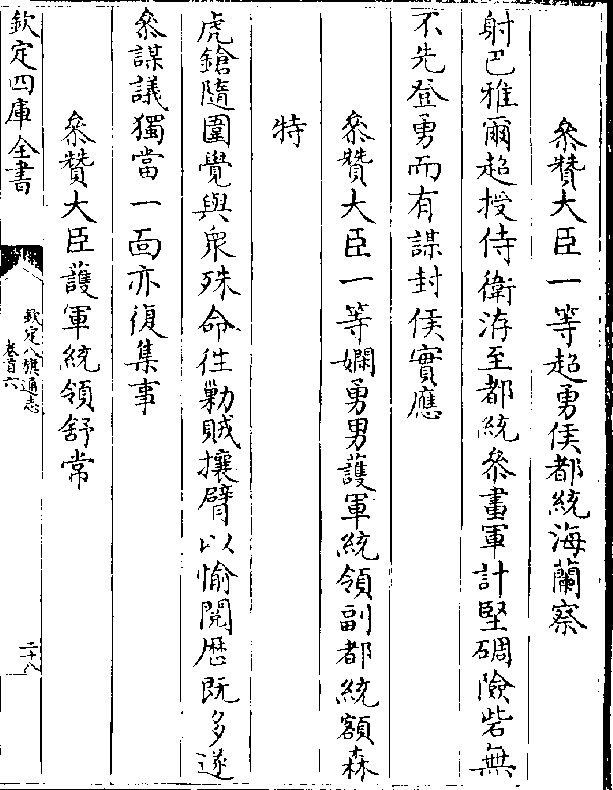 叅贊大臣一等超勇侯都統海蘭察
射巴雅爾超授侍衛洊至都統叅畫軍計堅碉險砦無
不先登勇而有謀封侯實應
叅贊大臣一等嫻勇男護軍統領副都統額森
特
虎鎗隨圍覺與衆殊命往勦賊攘臂以愉閱歴既多遂
叅謀議獨當一面亦復集事
叅贊大臣護軍統領舒常
欽定四庫全書
欽定八旗通志
卷首六
二十八